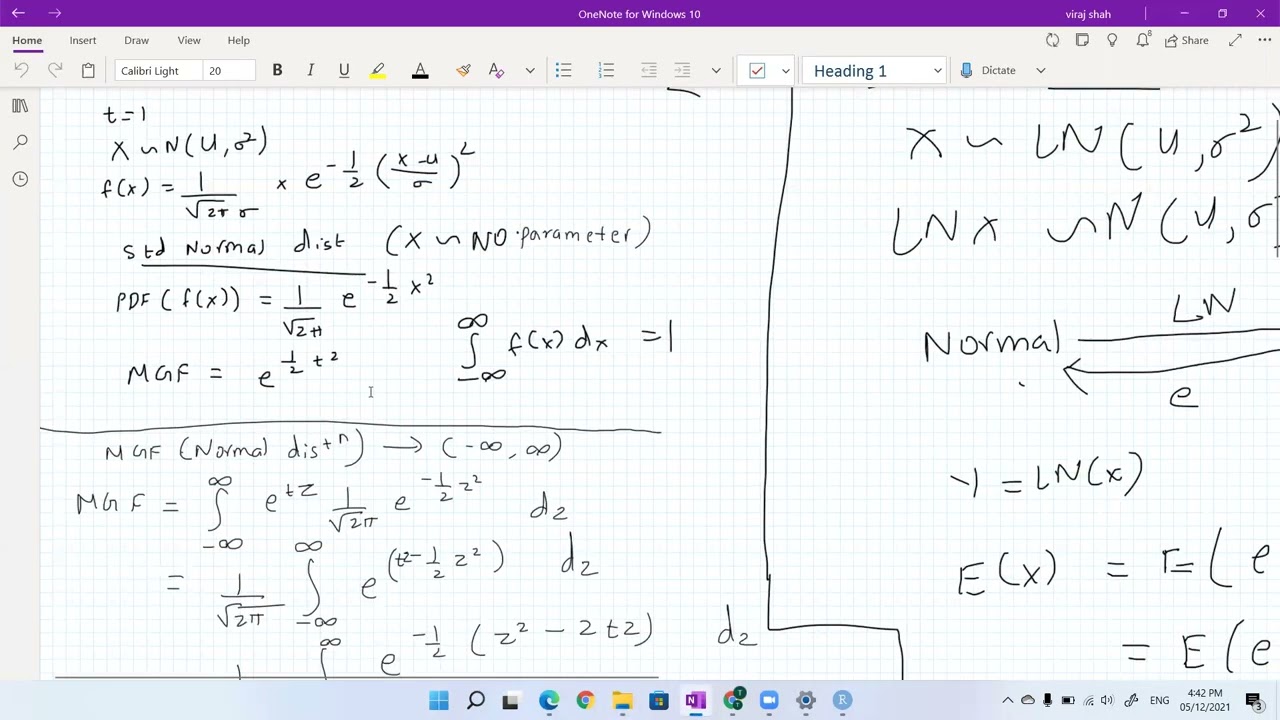 OneNote for Windows 10
viraj shah
Home Insert Draw View Help
Share
Calibri Light
B I U A
Heading 1
Dictate
t=1
X ~ N(U, σ²)
f(x) = 1/√2π σ × e^(-1/2 ((x-u)/σ)²)
std Normal dist (X ~ NO·parameter)
PDF(f(x)) = 1/√2π e^(-1/2 x²)
∫_{-∞}^{∞} f(x) dx = 1
MGF = e^(1/2 t²)
MGF (Normal distⁿ) → (-∞, ∞)
MGF = ∫_{-∞}^{∞} e^(tz) 1/√2π e^(-1/2 z²) dz
= 1/√2π ∫_{-∞}^{∞} e^(tz - 1/2 z²) dz
∞ e^(-1/2 (z² - 2tz)) dz
X ~ LN(U, σ²)
LN x ~ N(U, σ
LN
Normal
e
Y = LN(x)
E(x) = E(e
= E(e
ENG
4:42 PM
05/12/2021